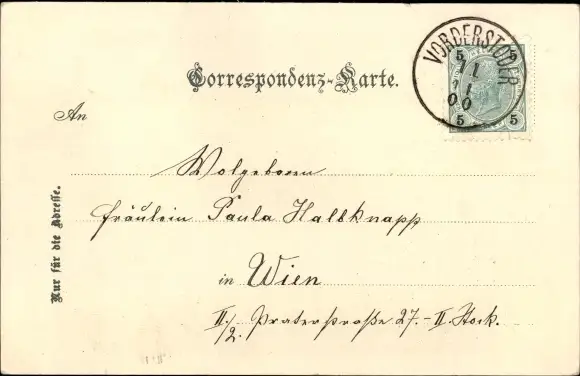 Correspondenz-Karte.
VORDERSTODER
5 5
11
1
00
5 5
An
Wolgeboren
Fräulein Paula Halbknapp
in Wien
II./2. Praterstraße 27.-II. Stock.
Nur für die Adresse.